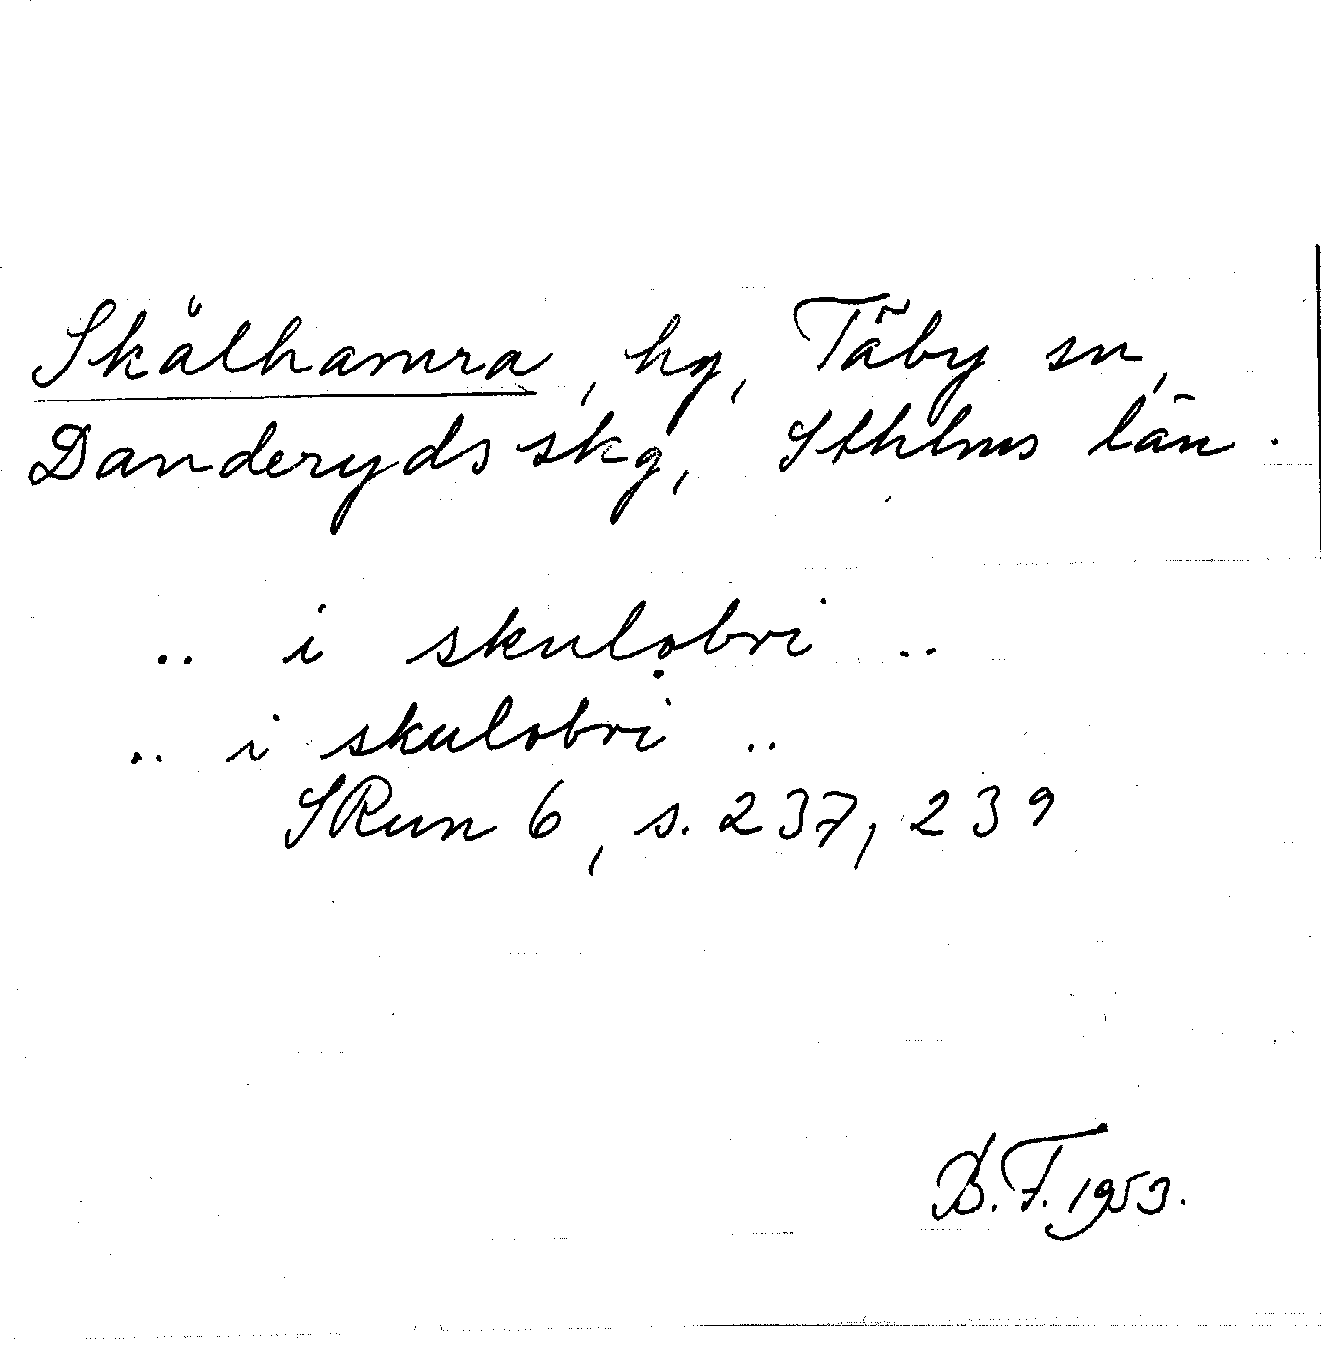 Skålhamra, hg, Täby sn,
Danderyds skg, Sthlms län.
.. i skulọbri ..
.. i skulobri ..
SRun 6, s. 237, 239
B.F. 1953.